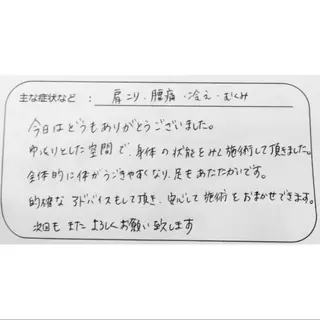 主な症状など : 肩こり、腰痛・冷え・むくみ
今日はどうもありがとうございました。
ゆったりとした空間で、身体の状態をみて施術して頂きました。
全体的に体がうごきやすくなり、足もあたたかいです。
的確なアドバイスもして頂き、安心して施術をおまかせできます。
次回も また よろしくお願い致します